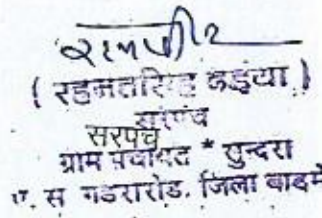 ( रहमतसिंह दहया )
सरपंच
सरपंच
ग्राम पंचायत * सुन्दरा
स गडरारोड. जिला बाडमे